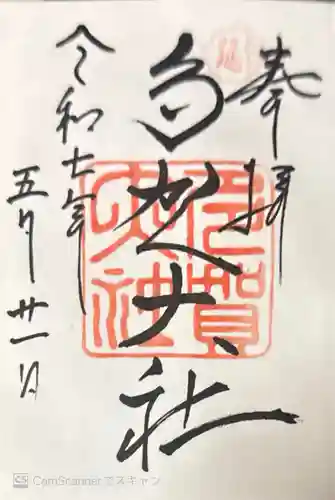 奉拝
多賀大社
令和七年
五月廿一日
多賀
大社
CS CamScanner でスキャン